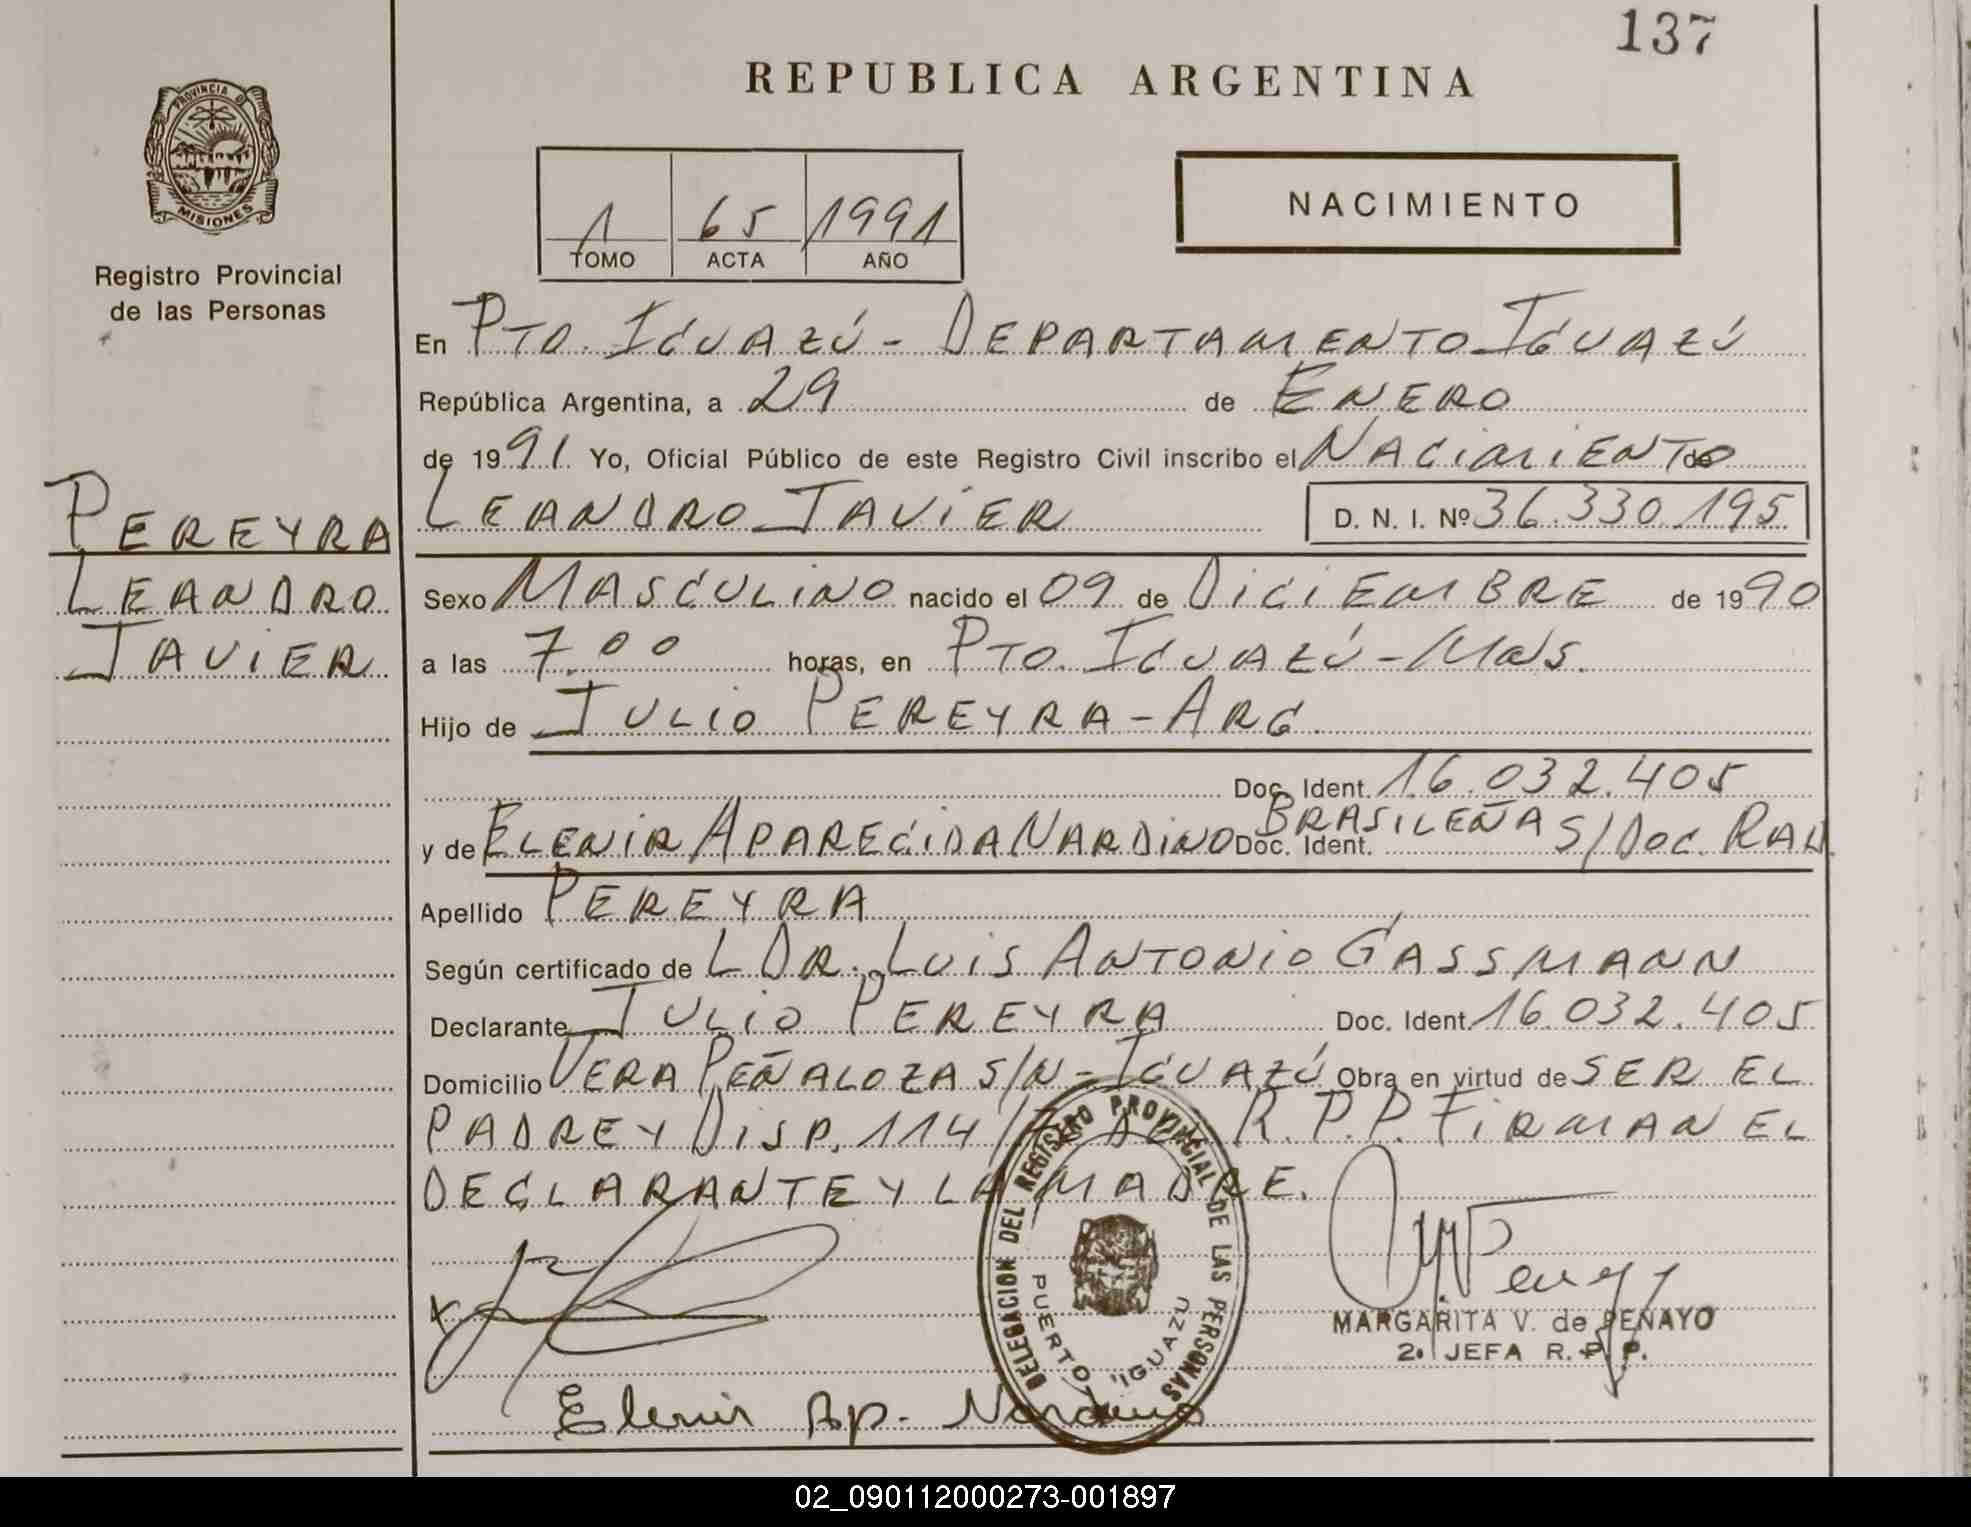 137
REPUBLICA ARGENTINA
PROVINCIA DE
MISIONES
Registro Provincial
de las Personas
1 65 1991
TOMO ACTA AÑO
NACIMIENTO
PEREYRA
LEANDRO
JAVIER
En PTO. IGUAZÚ - DEPARTAMENTO IGUAZÚ
República Argentina, a 29 de ENERO
de 1991 Yo, Oficial Público de este Registro Civil inscribo el NACIMIENTO de
LEANDRO JAVIER D. N. I. Nº 36.330.195
Sexo MASCULINO nacido el 09 de DICIEMBRE de 1990
a las 7.00 horas, en PTO. IGUAZÚ - Mns.
Hijo de JULIO PEREYRA - ARG.
Doc. Ident. 16.032.405
y de ELENIR APARECIDA NARDINO Doc. Ident. BRASILEÑA S/DOC. RAD.
Apellido PEREYRA
Según certificado de L DR. LUIS ANTONIO GASSMANN
Declarante JULIO PEREYRA Doc. Ident. 16.032.405
Domicilio VERA PEÑALOZA S/N - IGUAZÚ Obra en virtud de SER EL
PADRE Y DISP. 114/ R.P.P. FIRMAN EL
DECLARANTE Y LA MADRE.
DELEGACION DEL REGISTRO PROVINCIAL DE LAS PERSONAS
PUERTO IGUAZU
MARGARITA V. de PENAYO
2ª JEFA R. P. P.
Elenir Ap. Nardino
02_090112000273-001897